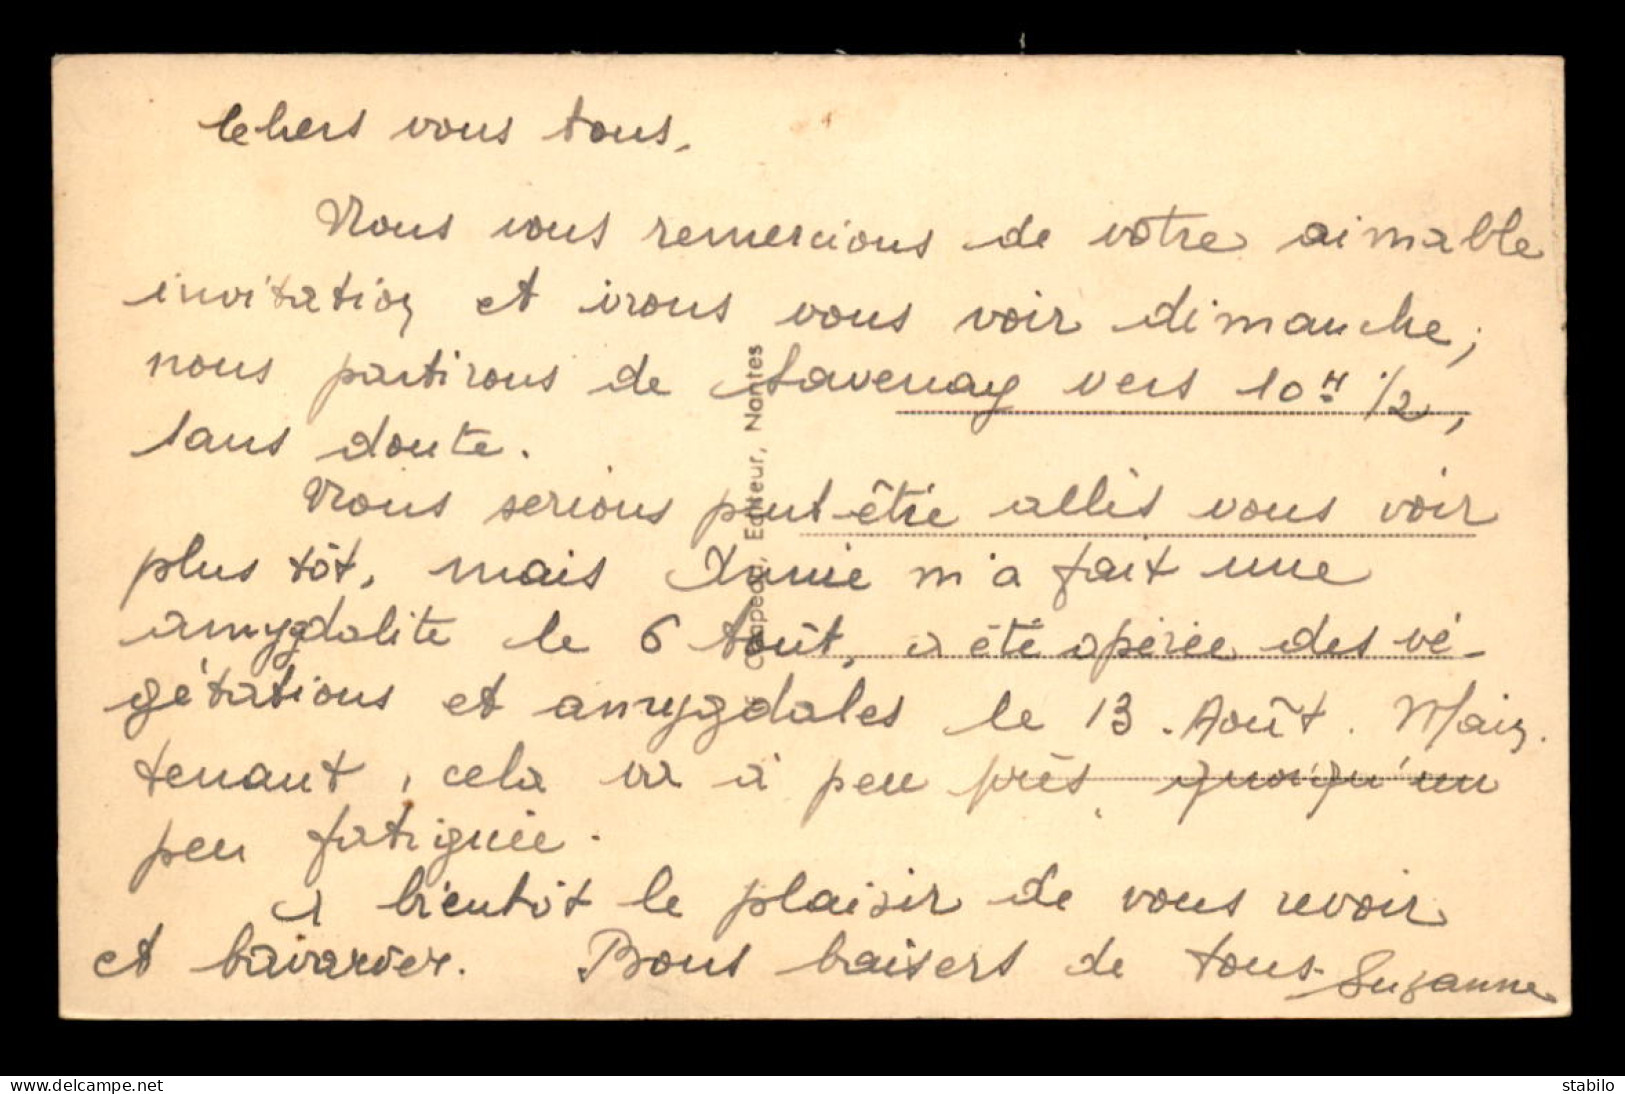 Chers vous tous,
Nous vous remercions de votre aimable
invitation et irons vous voir dimanche,
nous partirons de Savenay vers 10 H 1/2,
sans doute.
Nous serions peut-être allés vous voir
plus tôt, mais Annie m'a fait une
amygdalite le 6 Août, a été opérée des vé-
gétations et amygdales le 13 Août. Main-
tenant, cela va à peu près, quoiqu'un
peu fatiguée.
A bientôt le plaisir de vous revoir
et bavarder. Bons baisers de tous. Suzanne
Chapeau, Editeur, Nantes
www.delcampe.net
stabilo